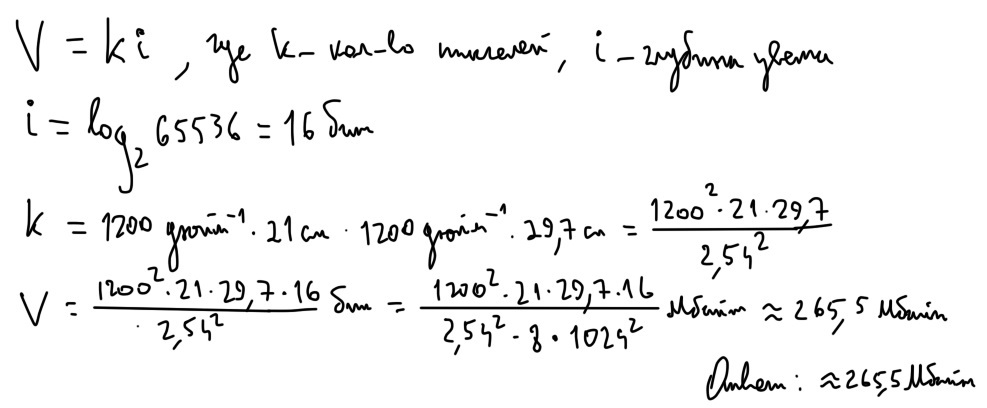 V = ki, где k – кол-во пикселей, i – глубина цвета
i = log₂ 65536 = 16 бит
k = 1200 дюйм⁻¹ · 21 см · 1200 дюйм⁻¹ · 29,7 см = 1200² · 21 · 29,7 / 2,54²
V = 1200² · 21 · 29,7 · 16 / 2,54² бит = 1200² · 21 · 29,7 · 16 / 2,54² · 8 · 1024² Мбайт ≈ 265,5 Мбайт
Ответ: ≈ 265,5 Мбайт